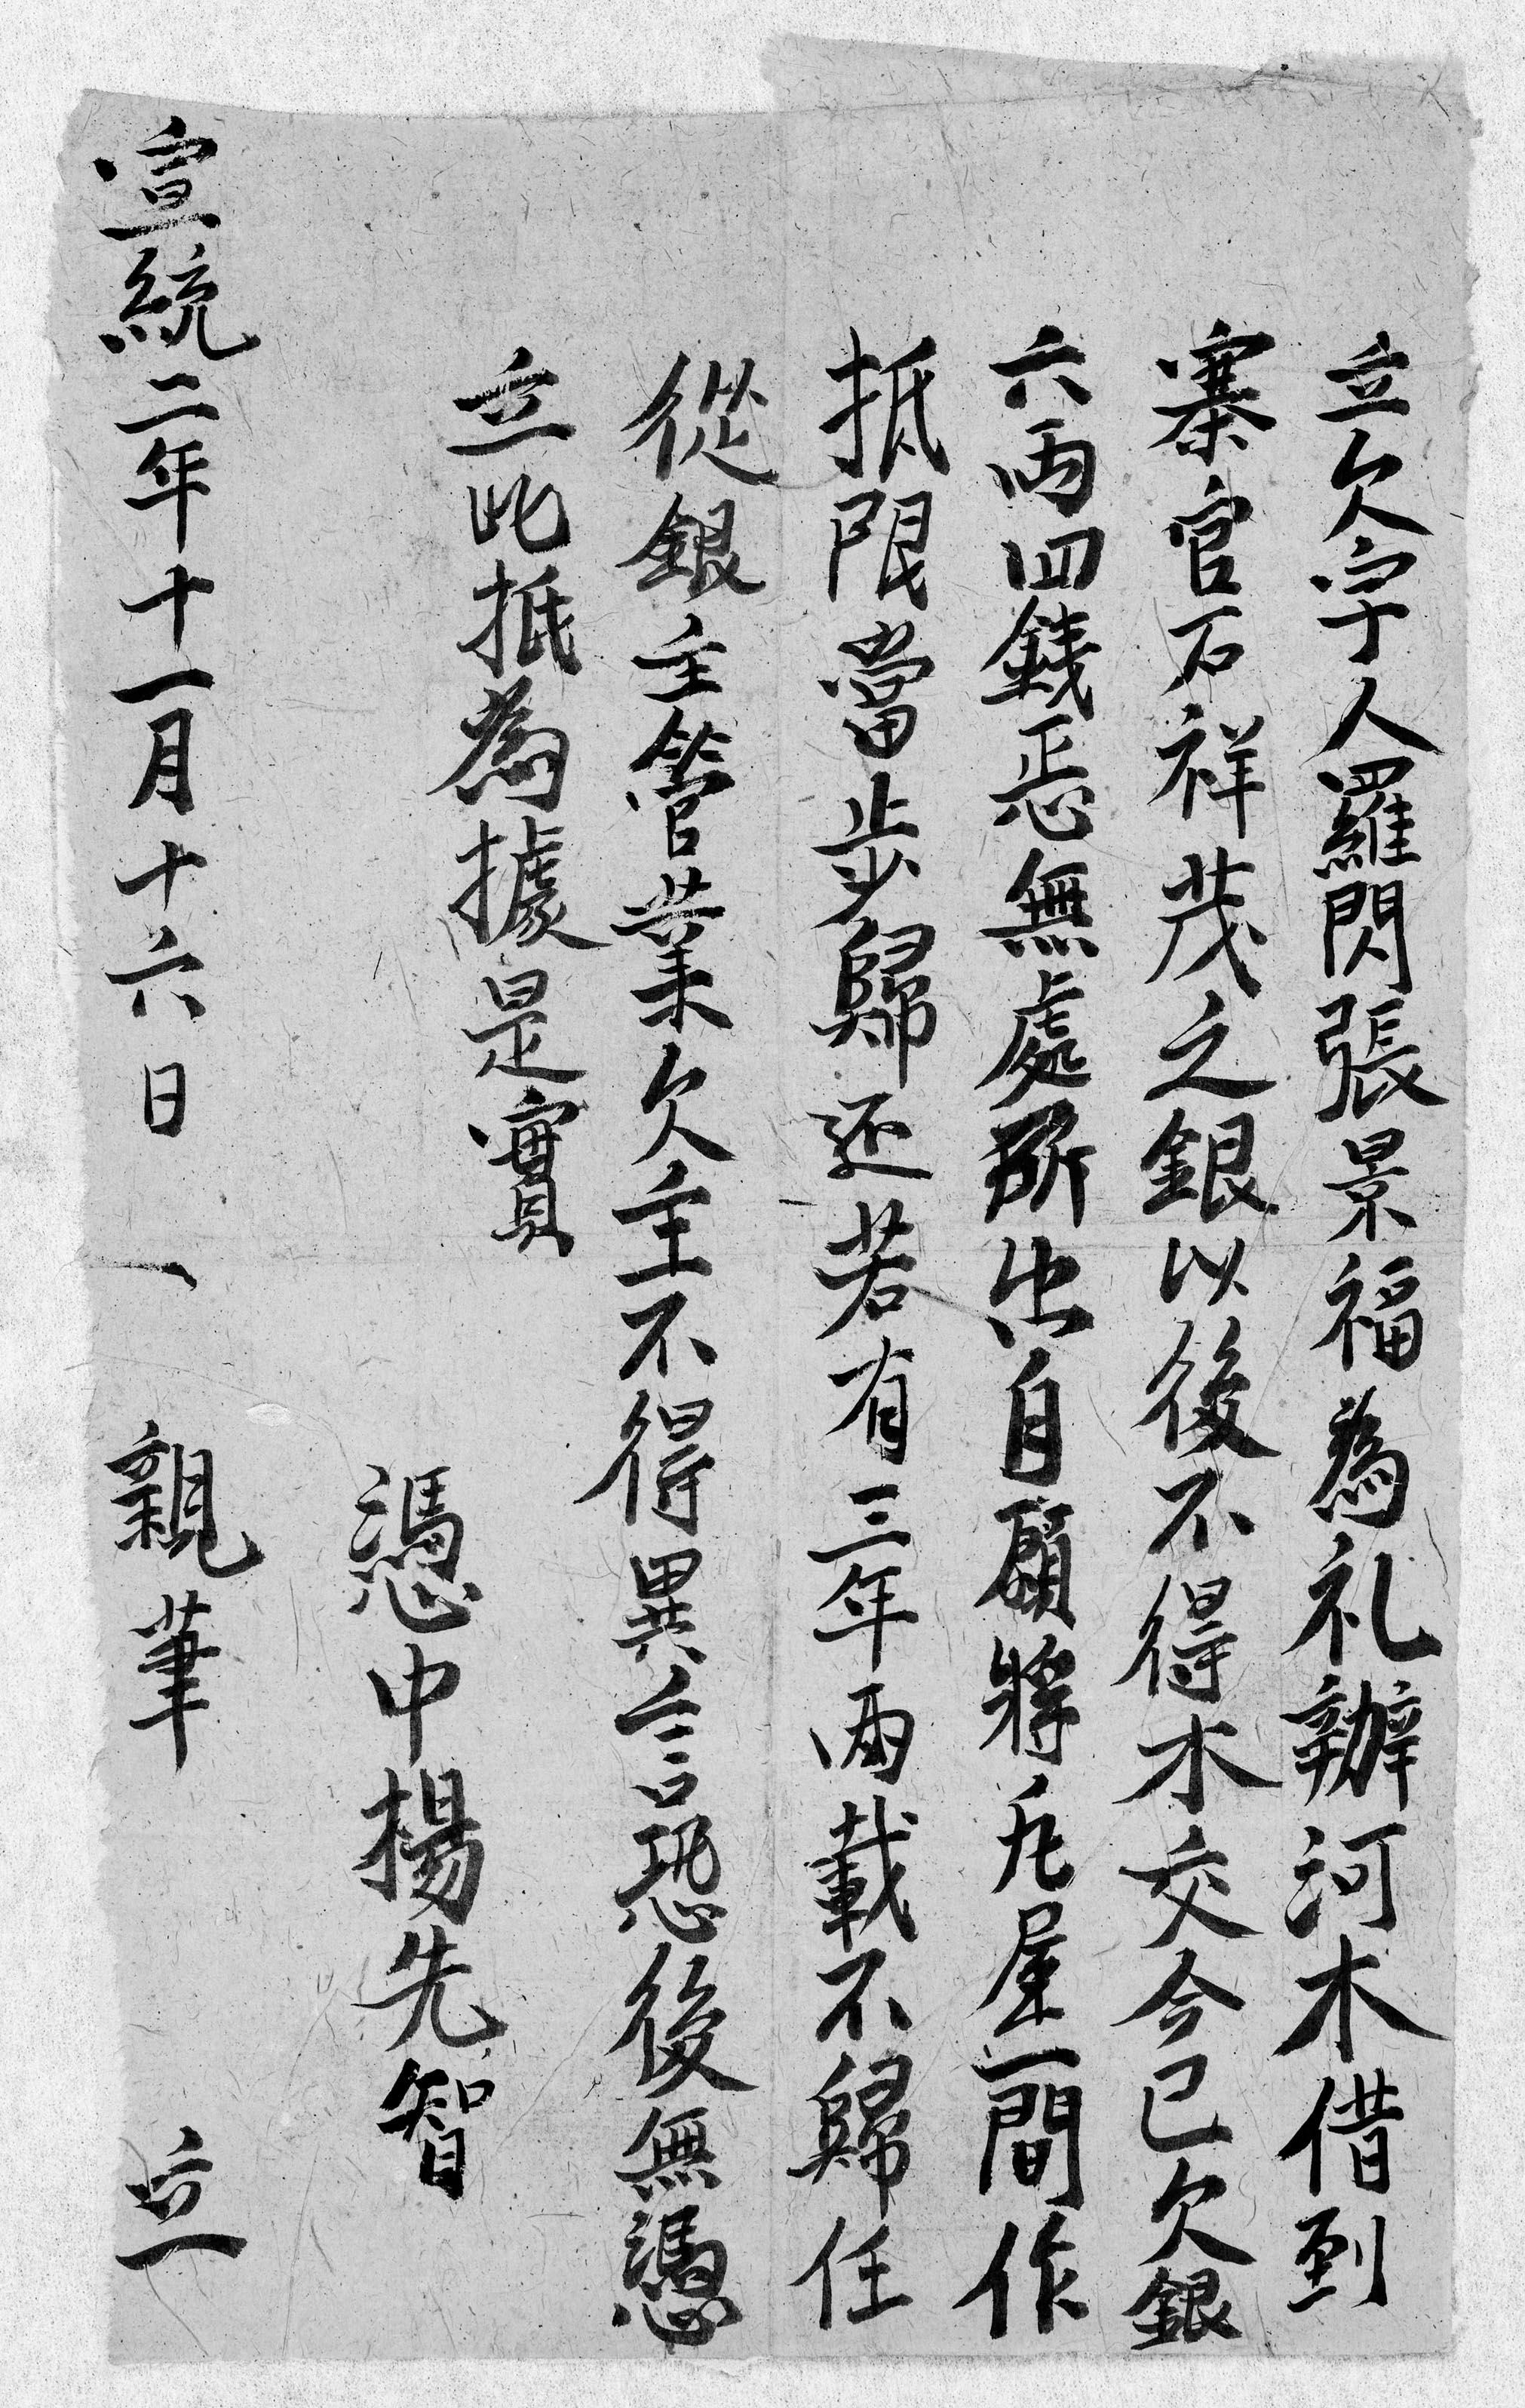 立欠字人羅閃張景福為礼辦河木借到
寨官石祥茂之銀以後不得木交今已欠銀
六兩四錢恁無處所出自願將瓦屋一間作
抵限當步歸还若有三年兩載不歸任
從銀主管業欠主不得異言恐後無憑
立此抵為據是實
憑中楊先智
宣統二年十一月十六日 親筆 立